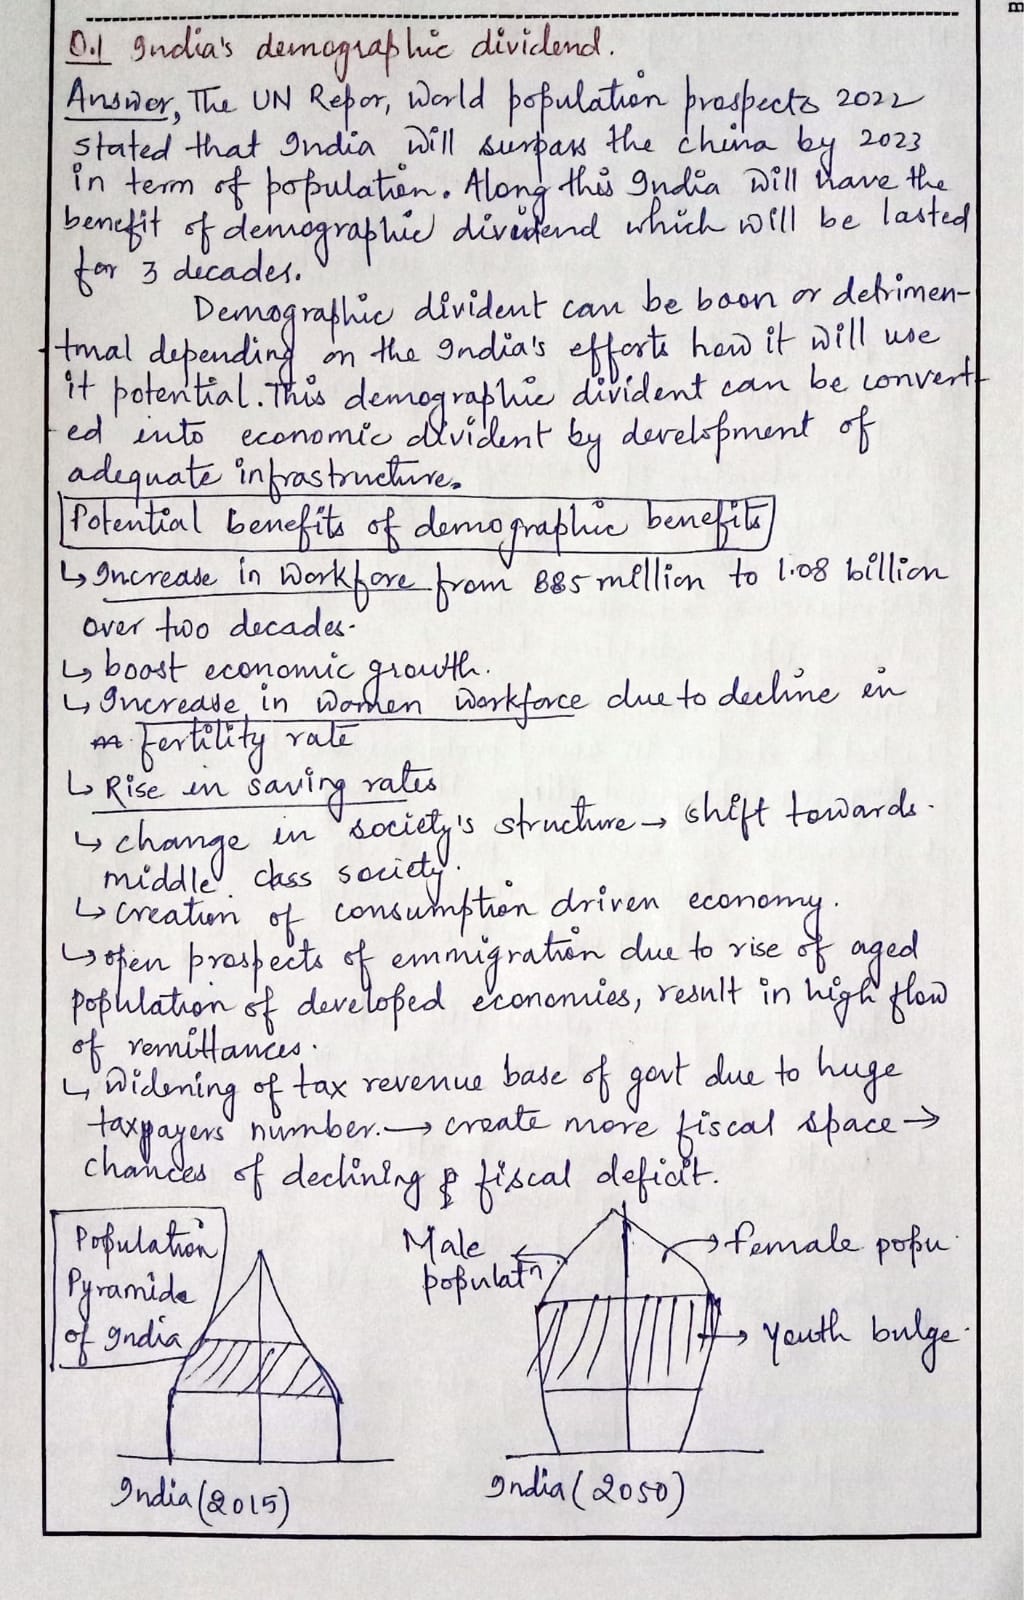 Q.1 India's demographic dividend.
Answer, The UN Repor, World population prospects 2022
stated that India will surpass the china by 2023
in term of population. Along this India will have the
benefit of demographic dividend which will be lasted
for 3 decades.
Demographic divident can be boon or detrimen-
tmal depending on the India's efforts how it will use
it potential. This demographic divident can be convert-
ed into economic divident by development of
adequate infrastructure.
Potential benefits of demographic benefits
↳ Increase in Workfore from 885 million to 1.08 billion
over two decades.
↳ boost economic growth.
↳ Increase in women workforce due to decline in
fertility rate
↳ Rise in saving rates
↳ change in society's structure → shift towards.
middle class society.
↳ creation of consumption driven economy.
↳ open prospects of emmigration due to rise of aged
population of developed economies, result in high flow
of remittances.
↳ Widening of tax revenue base of govt due to huge
taxpayers number. → create more fiscal space →
chances of declining fiscal deficit.
Population
Pyramide
of India
Male
populatn
female popu.
youth bulge.
India (2015)
India (2050)